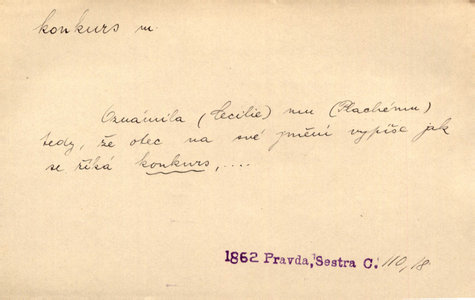 konkurs m.
Oznámila (Cecilie) mu (Plachému)
tedy, že otec na své jmění vypíše jak
se říká konkurs,....
1862 Pravda, Sestra C. 110,18